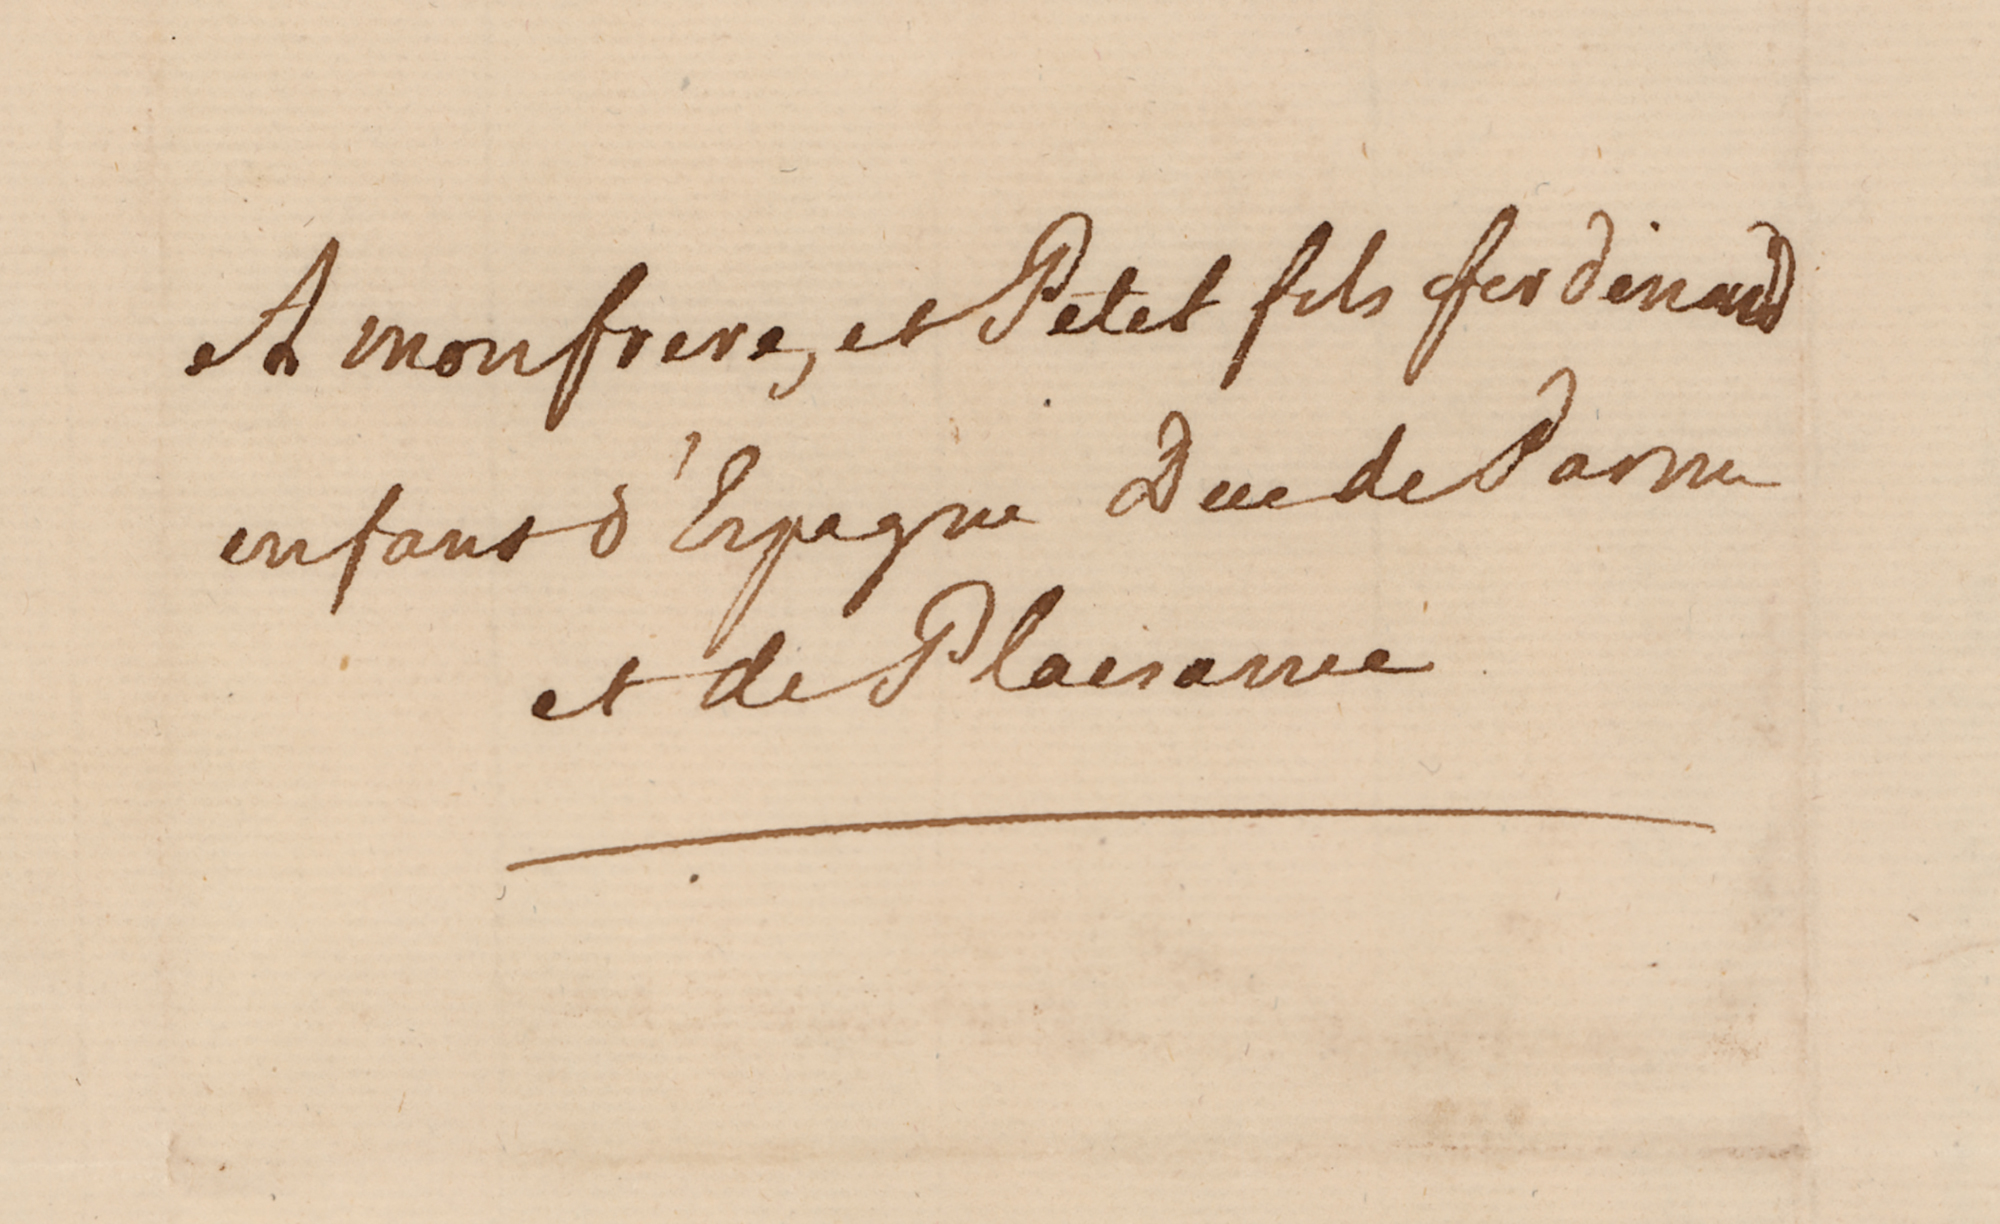 A mon frere, et Petit fils ferdinand
enfant d'Espagne Duc de Parme
et de Plaisance